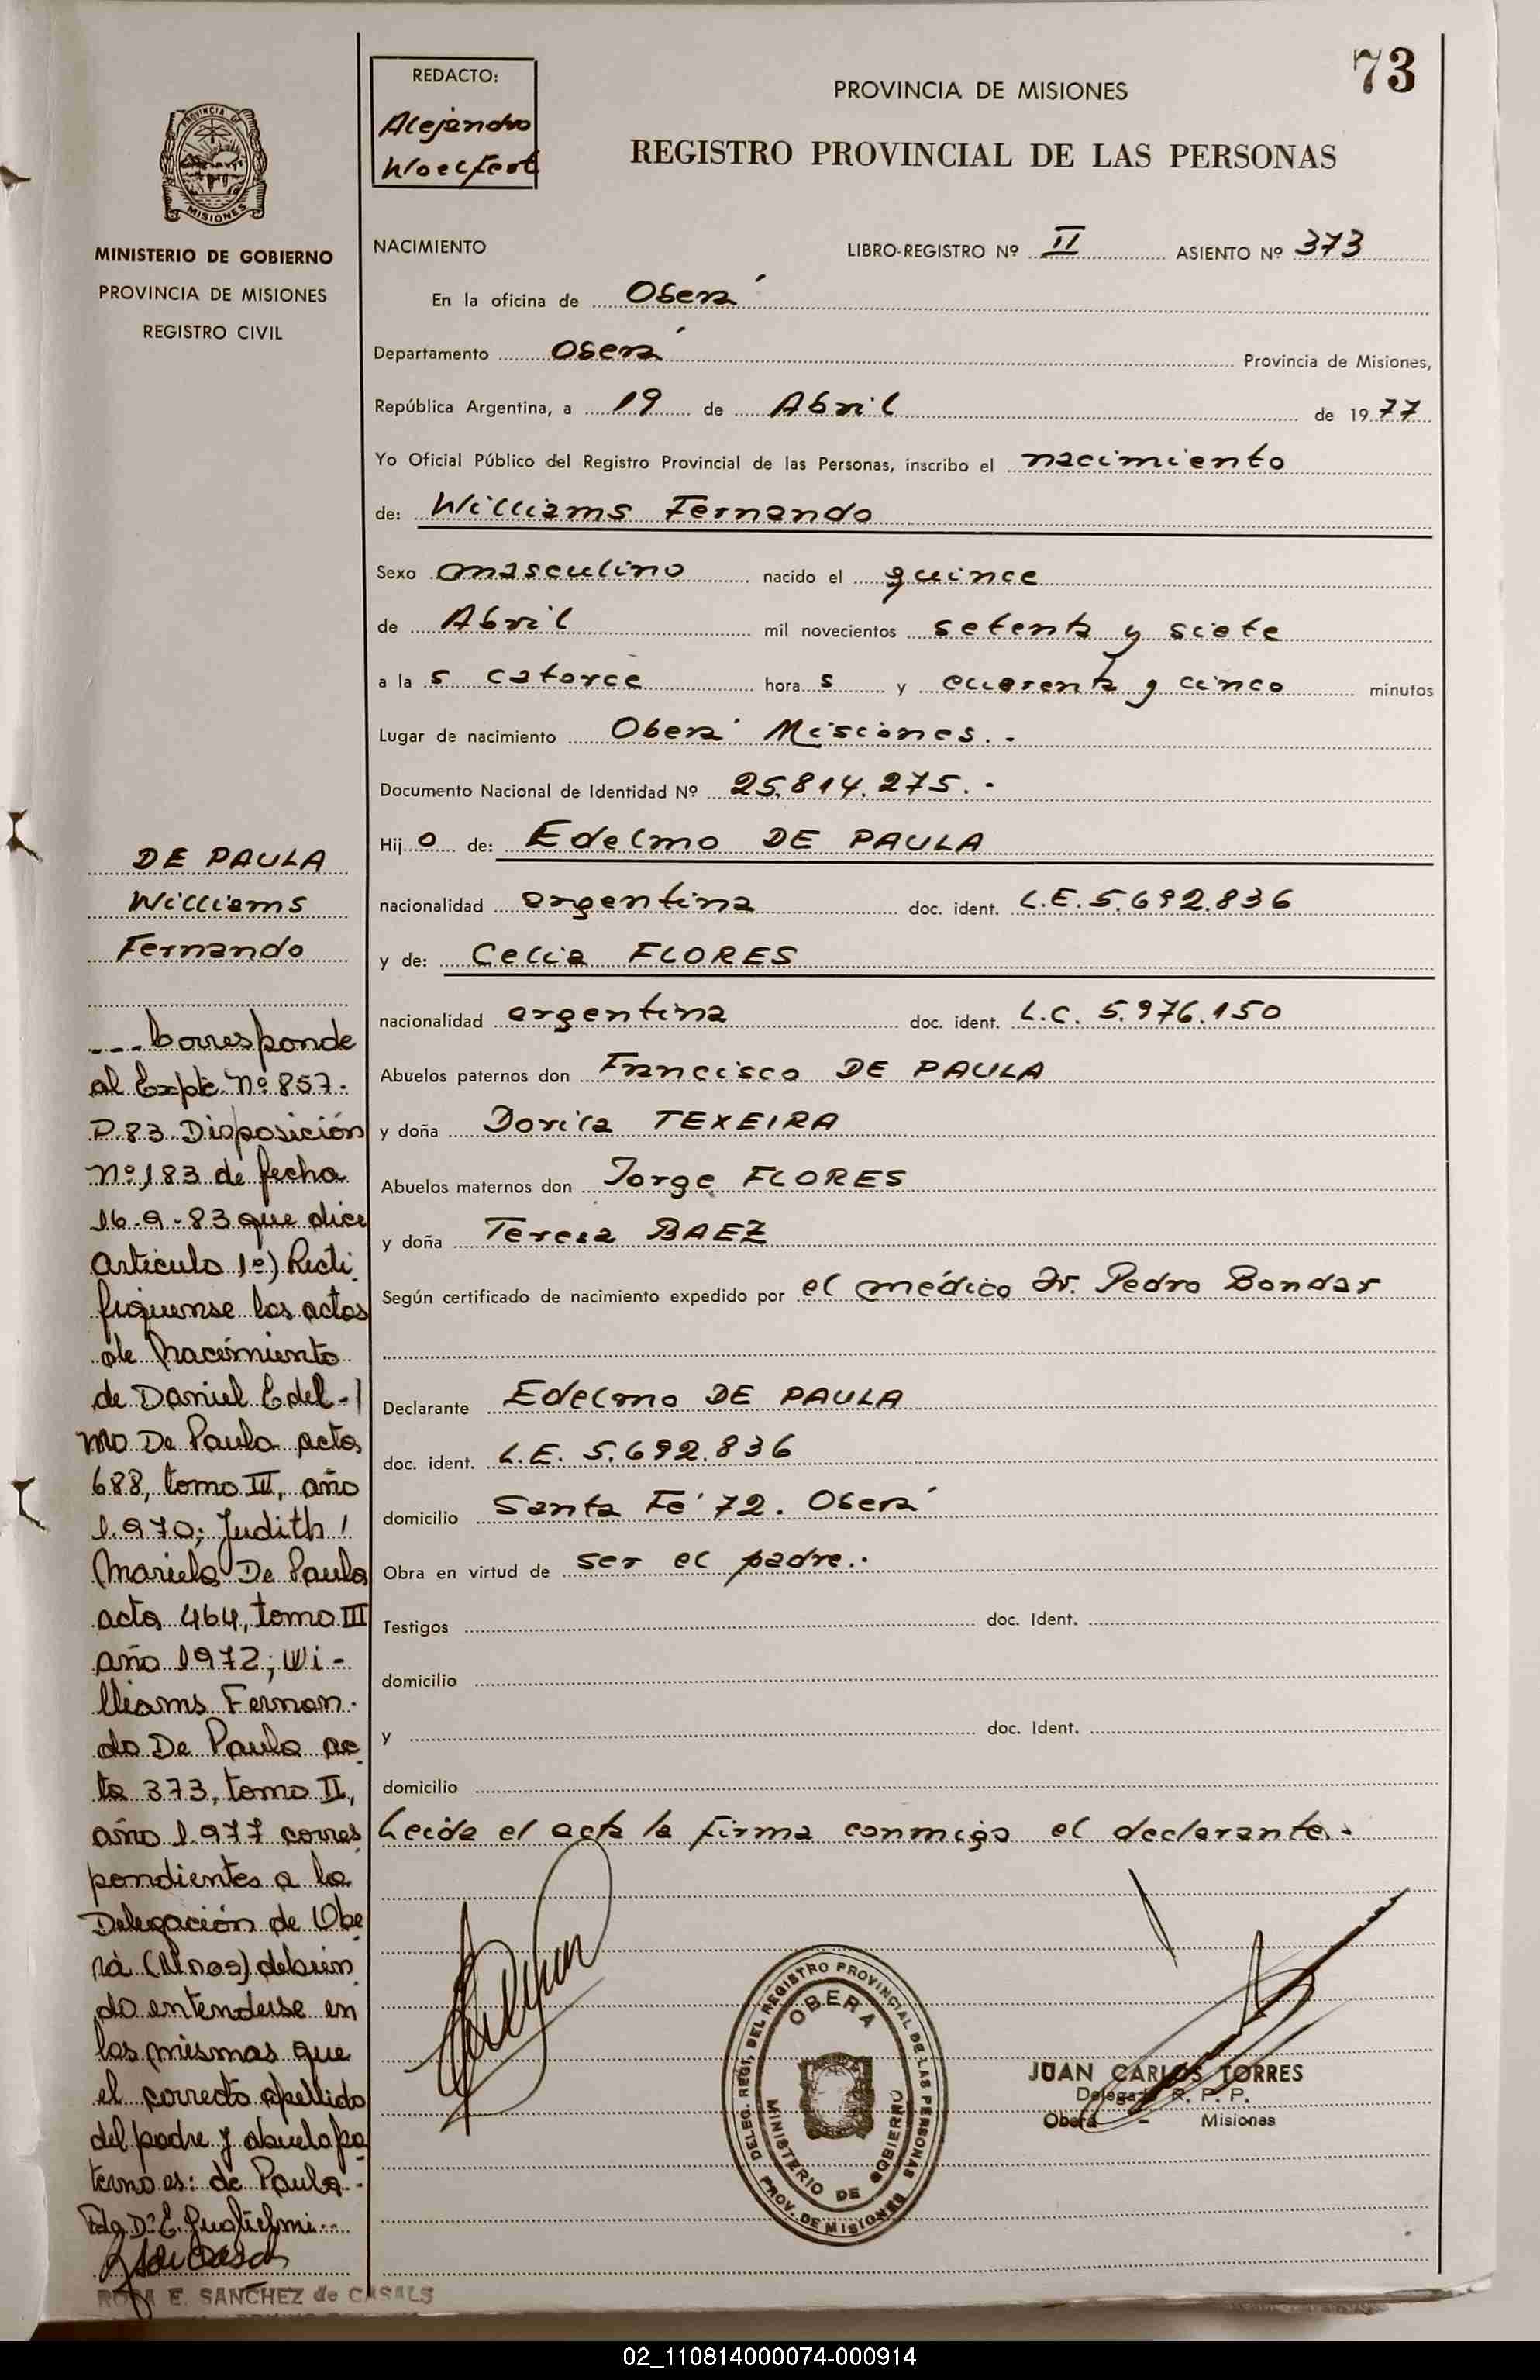 73
REDACTO:
Alejandro
Woelfert
PROVINCIA DE MISIONES
REGISTRO PROVINCIAL DE LAS PERSONAS
PROVINCIA DE
MISIONES
MINISTERIO DE GOBIERNO
PROVINCIA DE MISIONES
REGISTRO CIVIL
NACIMIENTO LIBRO-REGISTRO Nº II ASIENTO Nº 373
En la oficina de Oberá
Departamento Oberá Provincia de Misiones,
República Argentina, a 19 de Abril de 1977
Yo Oficial Público del Registro Provincial de las Personas, inscribo el nacimiento
de: Williams Fernando
Sexo masculino nacido el quince
de Abril mil novecientos setenta y siete
a la s catorce hora s y cuarenta y cinco minutos
Lugar de nacimiento Oberá Misiones.-
Documento Nacional de Identidad Nº 25.814.275.-
Hij o de: Edelmo DE PAULA
nacionalidad argentina doc. ident. L.E. 5.692.836
y de: Celia FLORES
nacionalidad argentina doc. ident. L.C. 5.976.150
Abuelos paternos don Francisco DE PAULA
y doña Dorila TEXEIRA
Abuelos maternos don Jorge FLORES
y doña Teresa BAEZ
Según certificado de nacimiento expedido por el médico Dr. Pedro Bondar
Declarante Edelmo DE PAULA
doc. ident. L.E. 5.692.836
domicilio Santa Fé 72. Oberá
Obra en virtud de ser el padre.-
Testigos doc. Ident.
domicilio
y doc. Ident.
domicilio
Leida el acta la firma conmigo el declarante.-
DE PAULA
Williams
Fernando
---Corresponde
al Expte. Nº 857-
P-83 Disposición
Nº 183 de fecha
16-9-83 que dice
Artículo 1º) Recti
fíquense las actas
de Nacimiento
de Daniel Edel-
mo De Paula acta
688, tomo III, año
1.970; Judith
Mariela De Paula
acta 464, tomo III
año 1972; Wi-
lliams Fernan-
do De Paula ac
ta 373, tomo II,
año 1.977 corres
pondientes a la
Delegación de Obe
rá (Mnes) debien
do entenderse en
las mismas que
el correcto apellido
del padre y abuelo pa
terno es: de Paula-
Fdo D. E. Guglielmi--
ROSA E. SANCHEZ de CASALS
DELEG. REGT. DEL REGISTRO PROVINCIAL DE LAS PERSONAS
OBERA
MINISTERIO DE GOBIERNO
PROV. DE MISIONES
JUAN CARLOS TORRES
Delegado R. P. P.
Oberá - Misiones
02_110814000074-000914